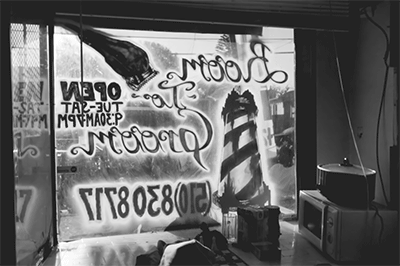 Room
To
Groom
OPEN
TUE-SAT
9:30AM-7PM
(510)8308717